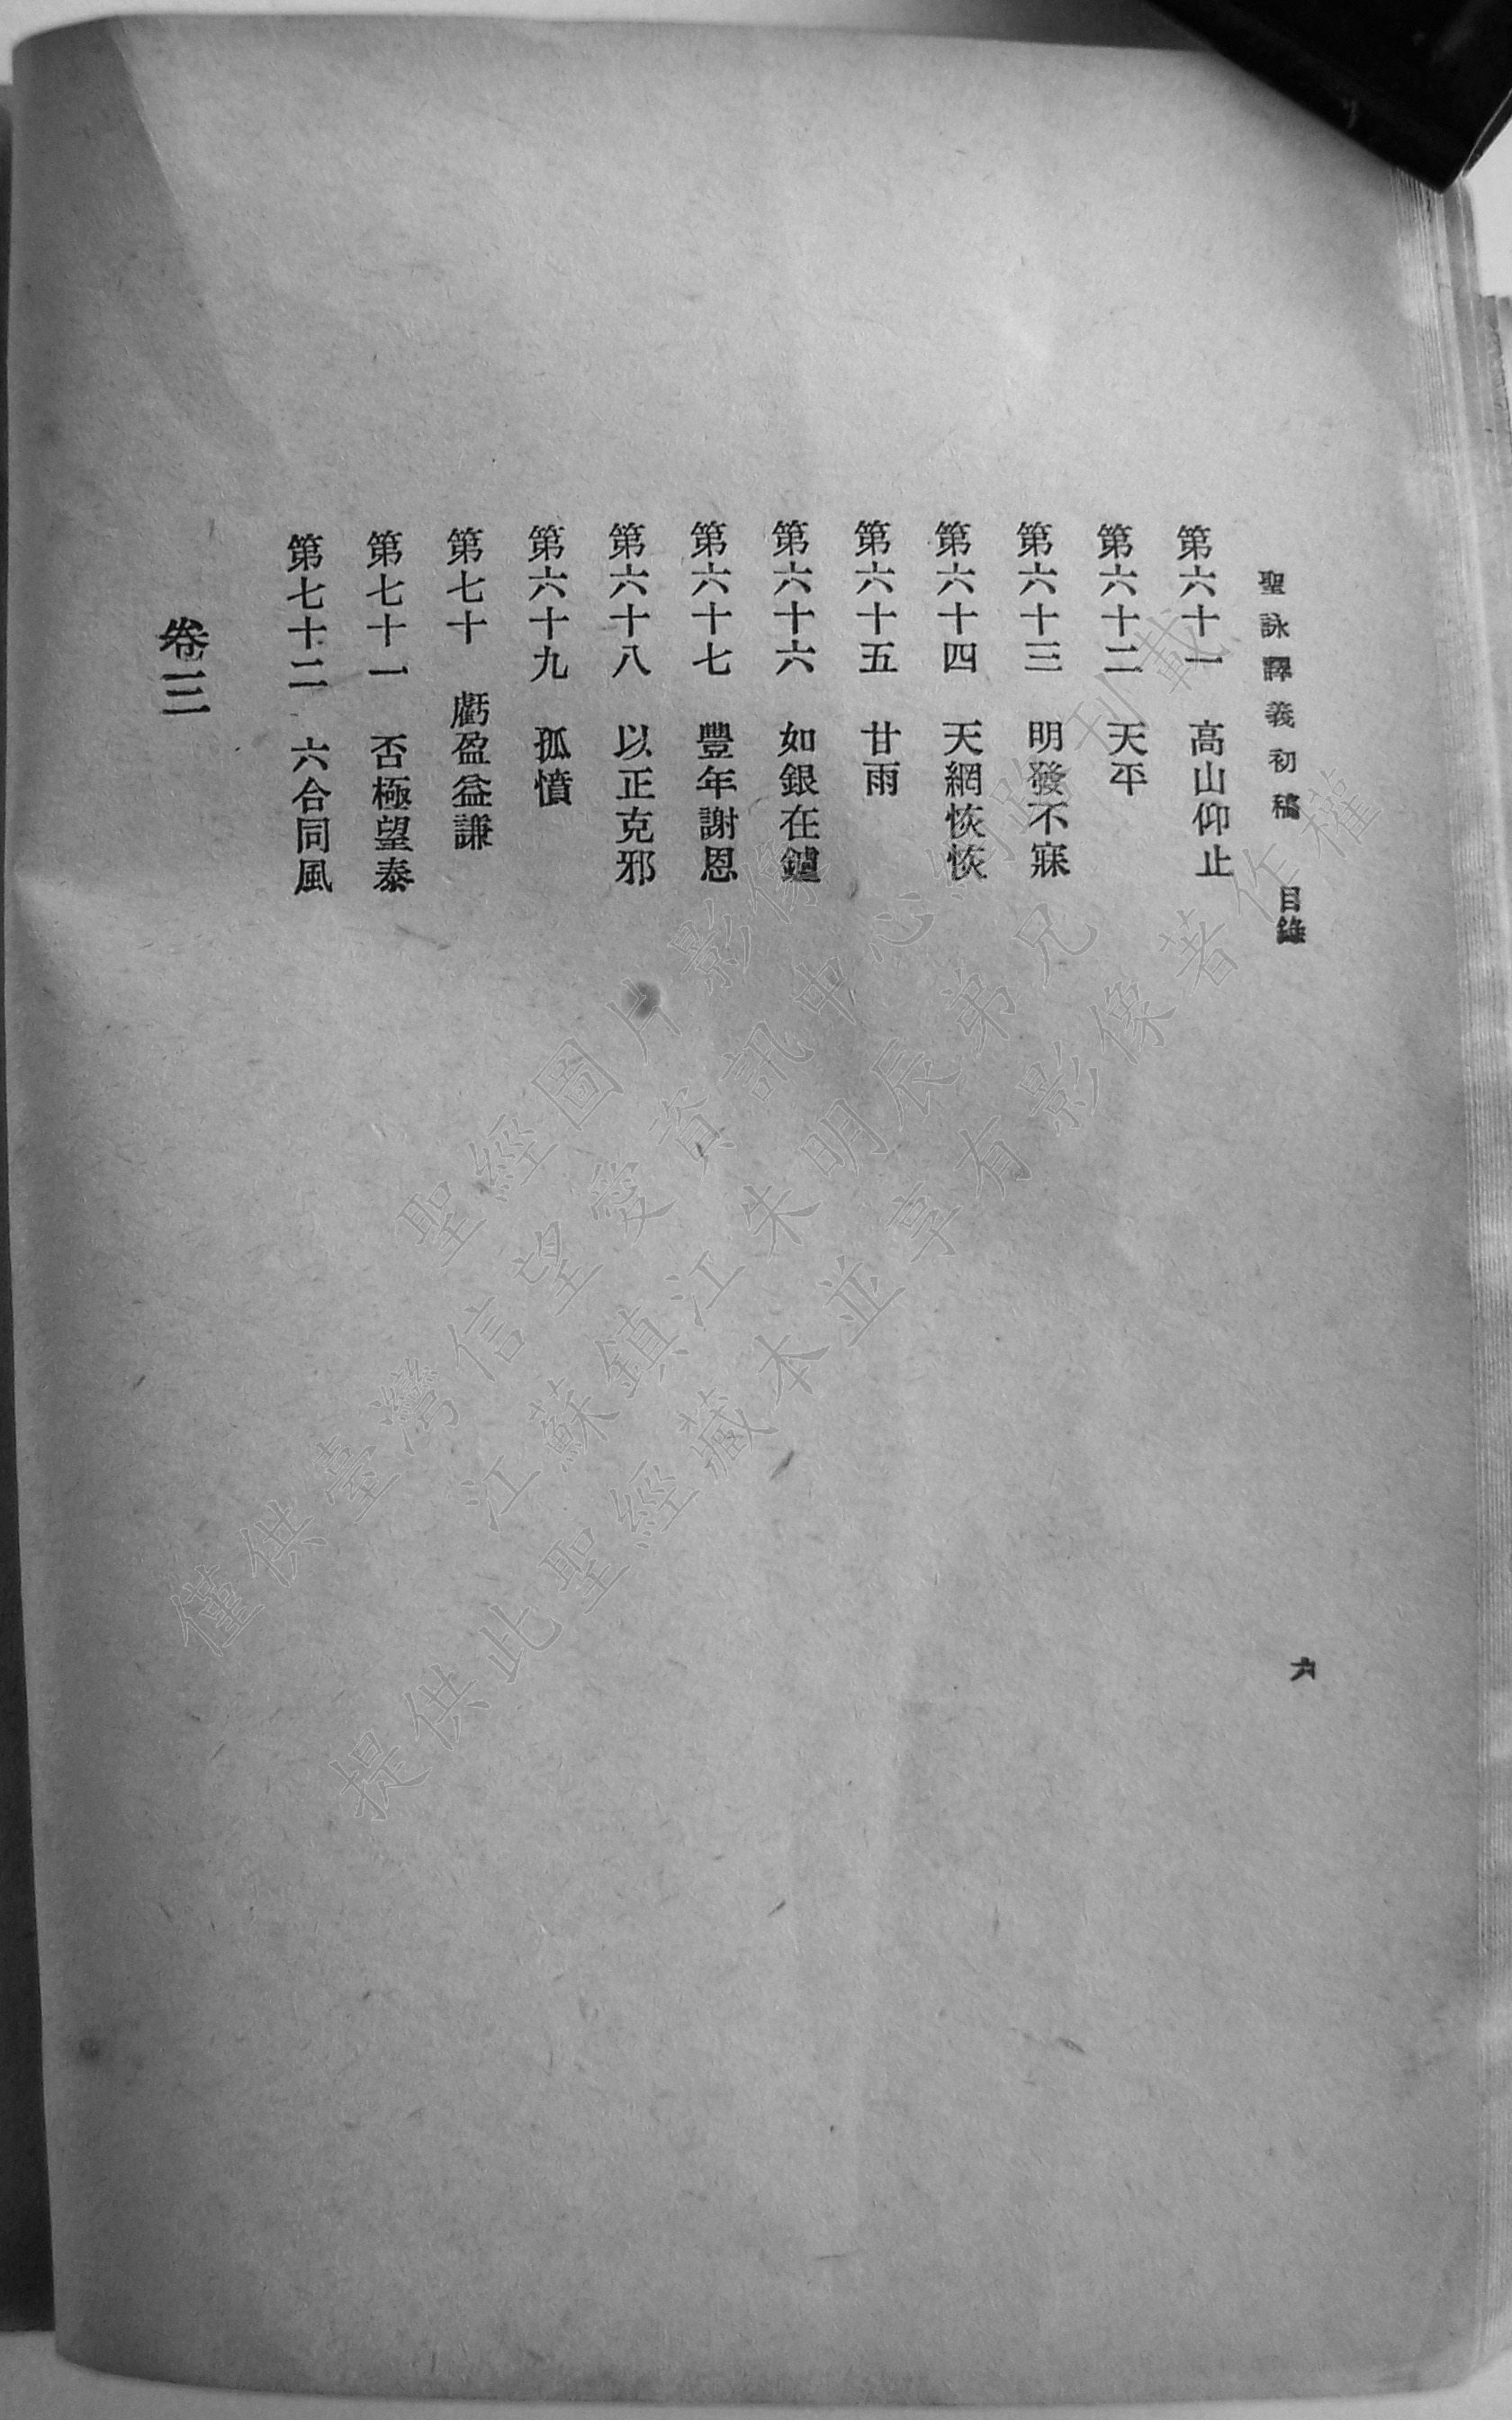 聖詠譯義初稿 目錄
六
第六十一 高山仰止
第六十二 天平
第六十三 明發不寐
第六十四 天網恢恢
第六十五 甘雨
第六十六 如銀在鑪
第六十七 豐年謝恩
第六十八 以正克邪
第六十九 孤憤
第七十 虧盈益謙
第七十一 否極望泰
第七十二 六合同風
卷三
聖經圖片影像
僅供臺灣信望愛資訊中心網路刊載
江蘇鎮江朱明辰弟兄
提供此聖經藏本並享有影像著作權